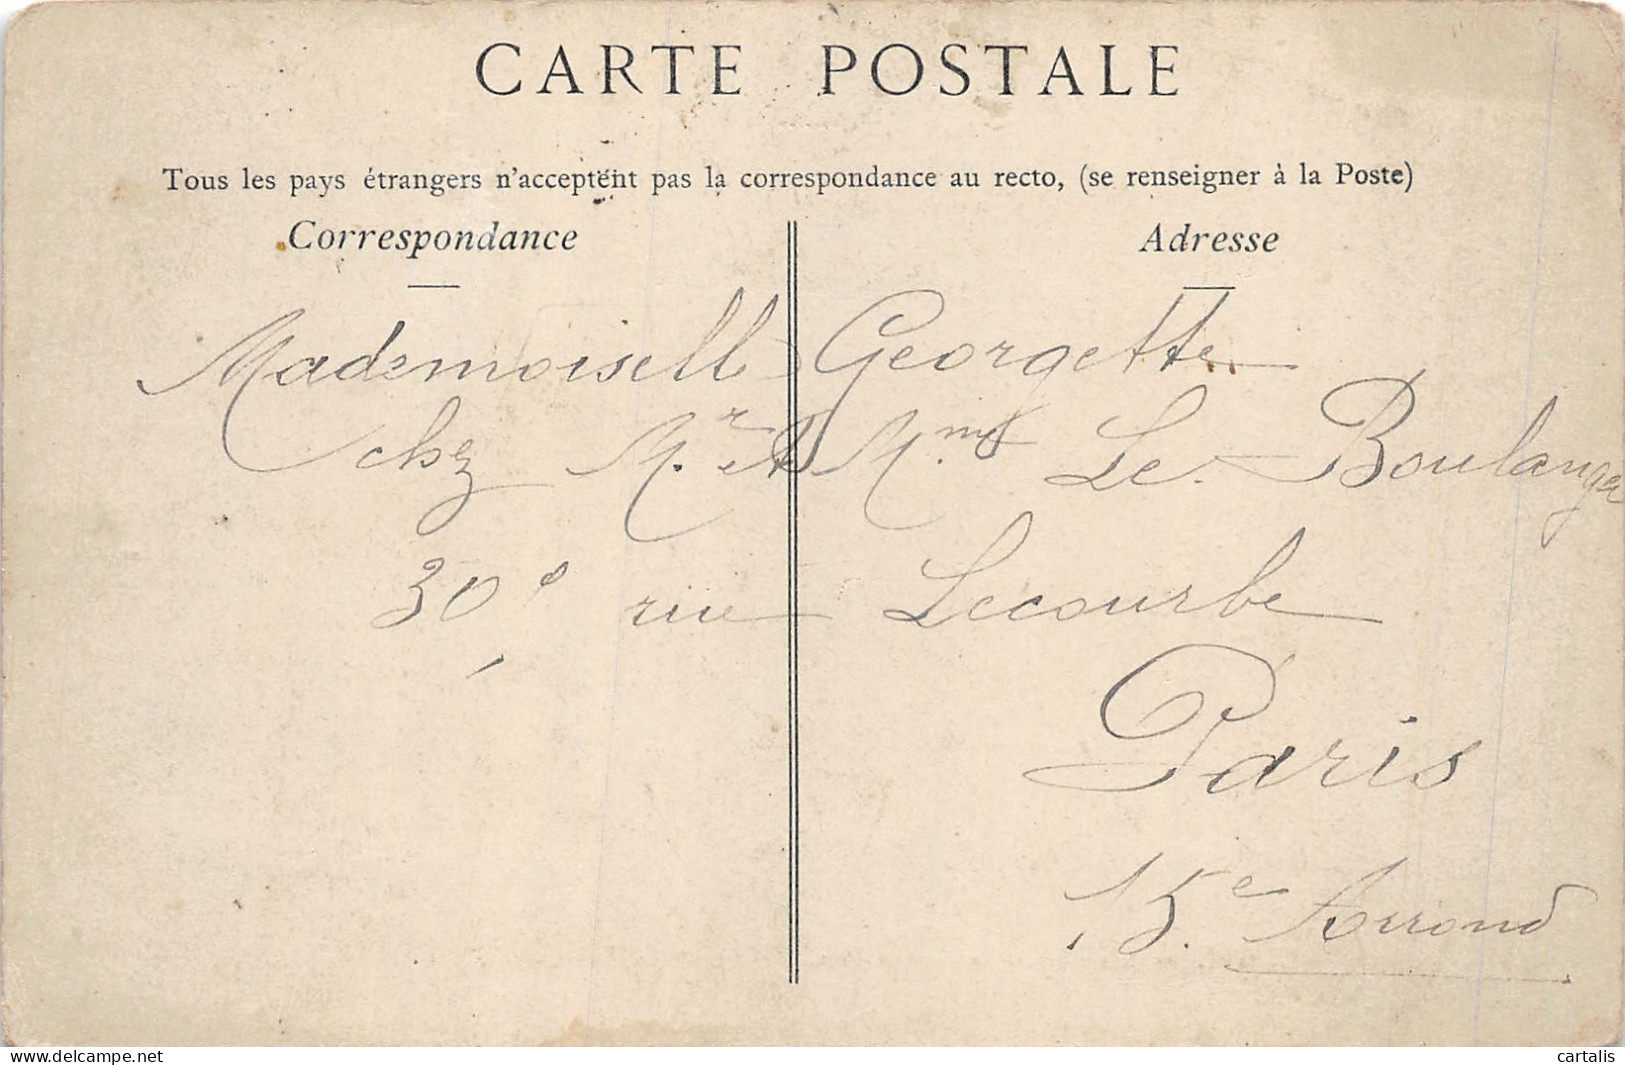 CARTE POSTALE
Tous les pays étrangers n'acceptent pas la correspondance au recto, (se renseigner à la Poste)
Correspondance Adresse
Mademoiselle Georgette
chez Mr et Mme Le Boulanger
30 rue Lecourbe
Paris
15e Arrond
www.delcampe.net cartalis